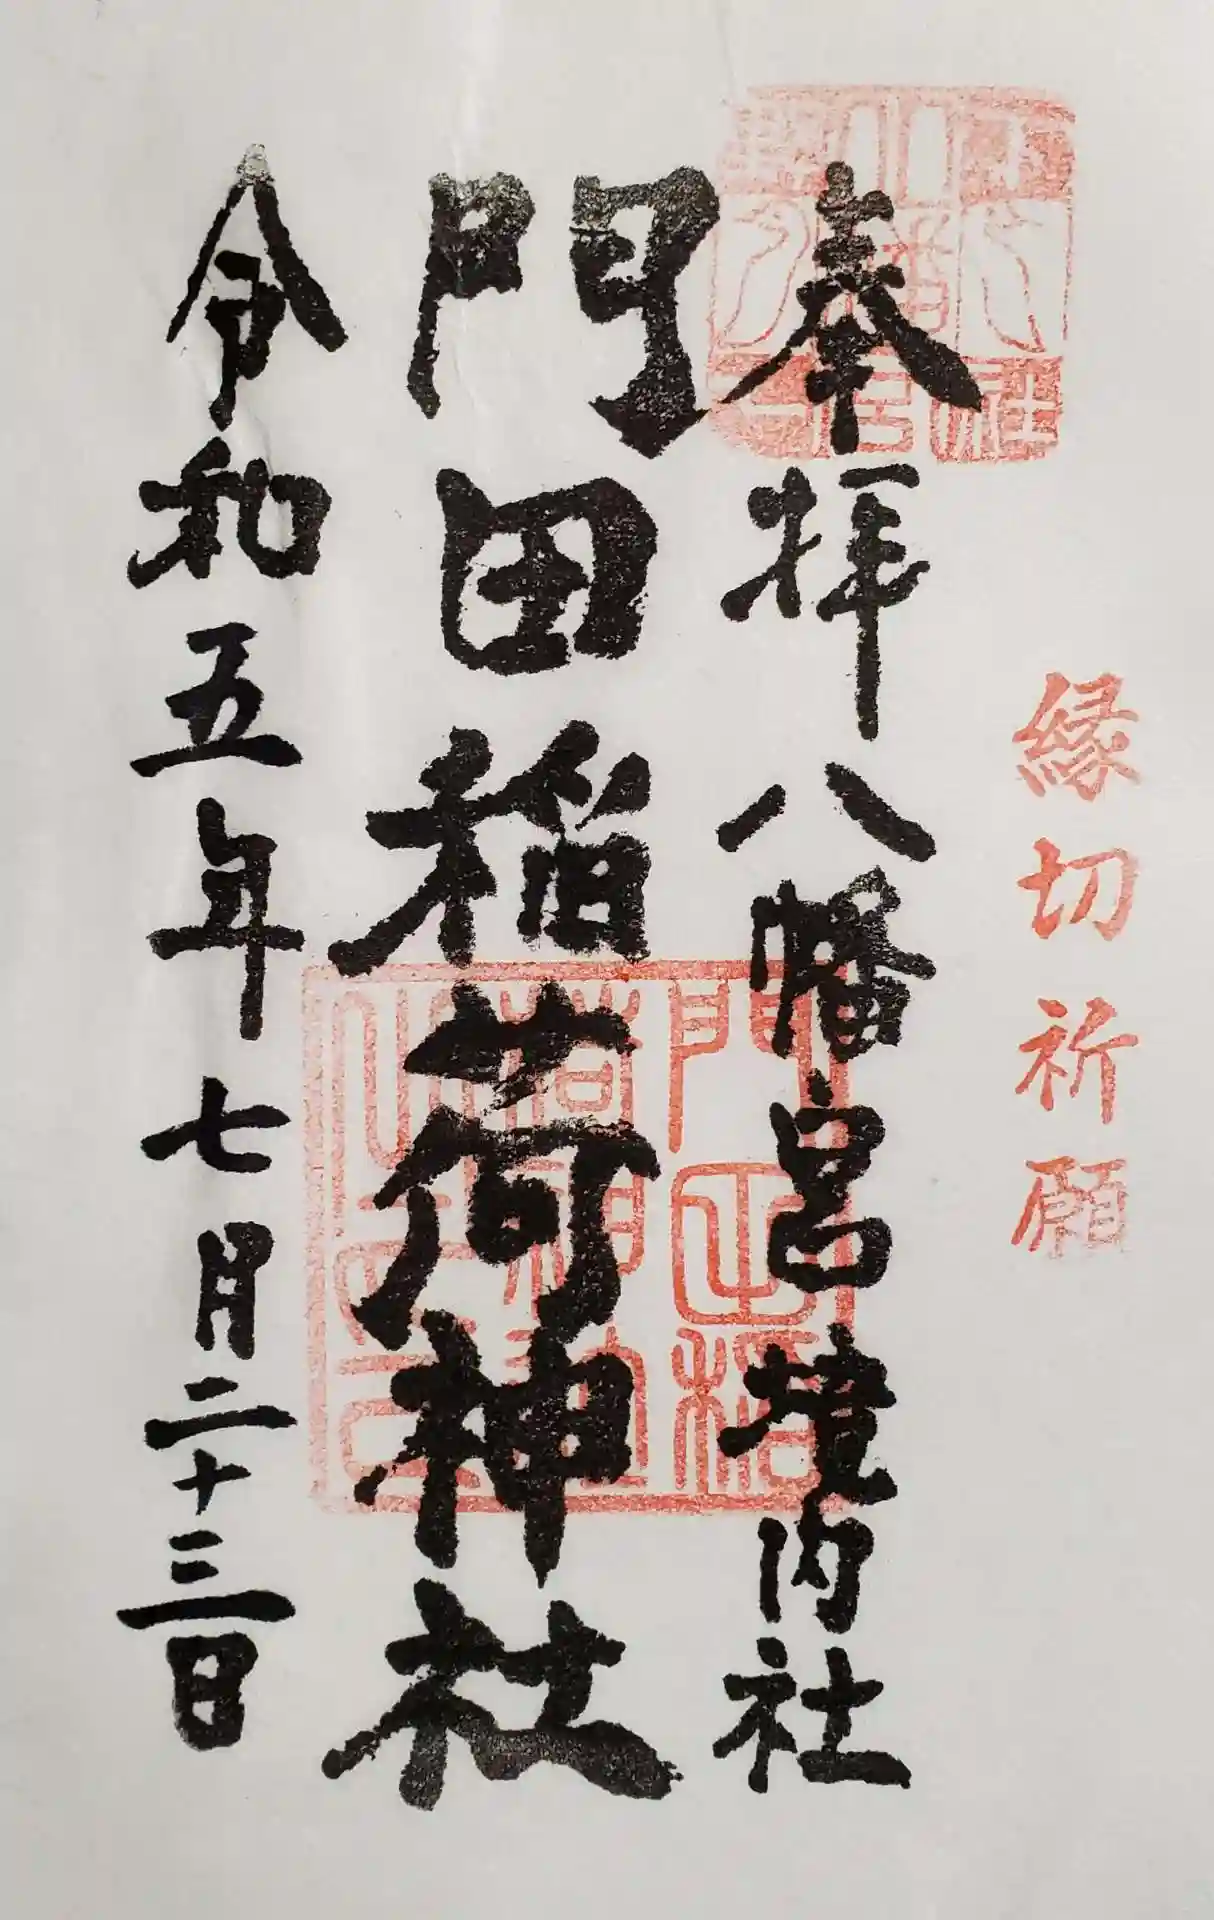 縁切祈願
奉拝八幡宮境内社
門田稲荷神社
令和五年七月二十三日